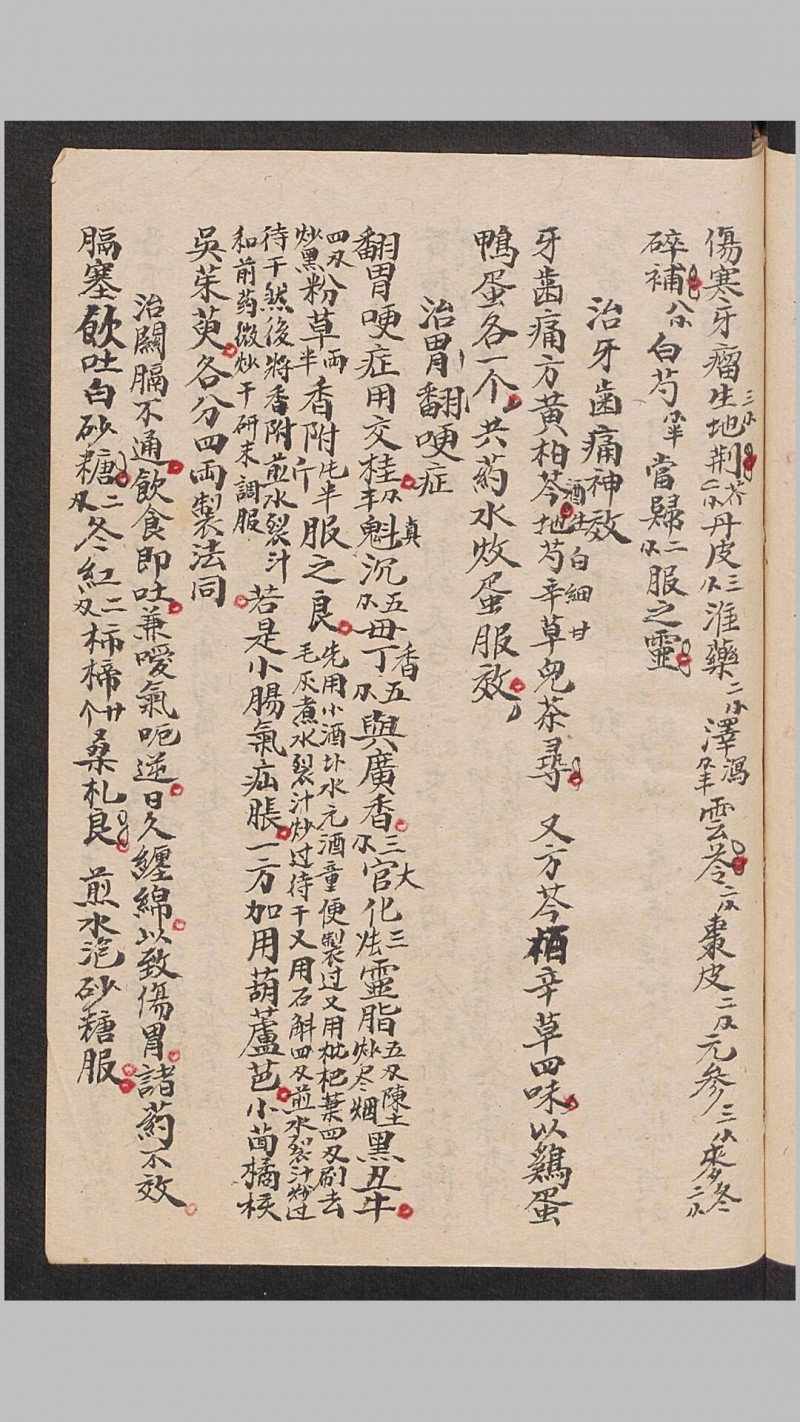 傷寒牙瘤生地三小荆芥二小丹皮三小淮藥二小澤瀉小半雲苓二小棗皮二小元參三小麥冬二小
碎補八小白芍小半當歸二小服之靈
治牙齒痛神效
牙齒痛方黃柏芩酒生地白芍細辛甘草兒茶尋 又方芩栢辛草四味以鷄蛋
鴨蛋各一个共药水炆蛋服效
治胃翻哽症
翻胃哽症用交桂真魁沉五小毋丁香五小與廣香三小官化大三靈脂五刄炒尽烟陳土黑丑牛
四刄炒黑粉草両半香附斤半服之良先用小酒水元酒童便製过又用枇杷葉四刄刷去
毛灰煮水裂汁炒过待干又用石斛四刄煎水裂汁炒过
待干然後將香附煎水裂汁
和前药微炒干研末調服 若是小腸氣疝脹一方加用葫蘆芭小茴橘核
吳茱萸各分四両製法同
治闗膈不通飲食即吐兼噯氣呃逆日久纏綿以致傷胃諸药不效
膈塞飲吐白砂糖二刄冬紅二刄柿楴卄个桑札良 煎水泡砂糖服